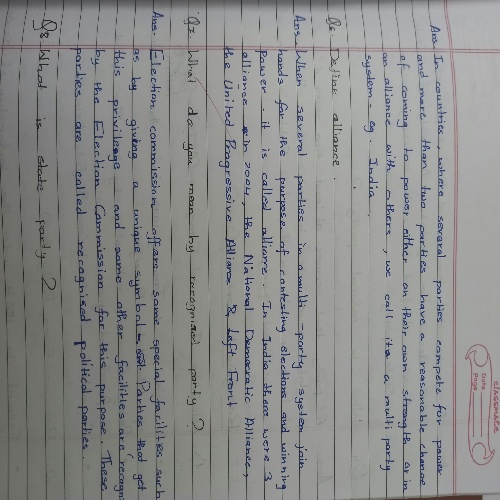 classmate
Date
Page
Ans. In countries, where several parties compete for power
and more than two parties have a reasonable chance
of coming to power either on their own strength or in
an alliance with others, we call it a multi party
system. eg. India.
Q6 Define alliance.
Ans. When several parties in a multi-party system join
hands for the purpose of contesting elections and winning
power, it is called alliance. In India there were 3
alliance in 2004, the National Democratic Alliance,
the United Progressive Alliance & Left Front
Q7 What do you mean by recognised party?
Ans. Election commission offers some special facilities such
as by giving a unique symbol. Parties that get
this privilege and some other facilities are recogn
by the Election Commission for this purpose. These
parties are called recognised political parties.
Q8 What is state party?